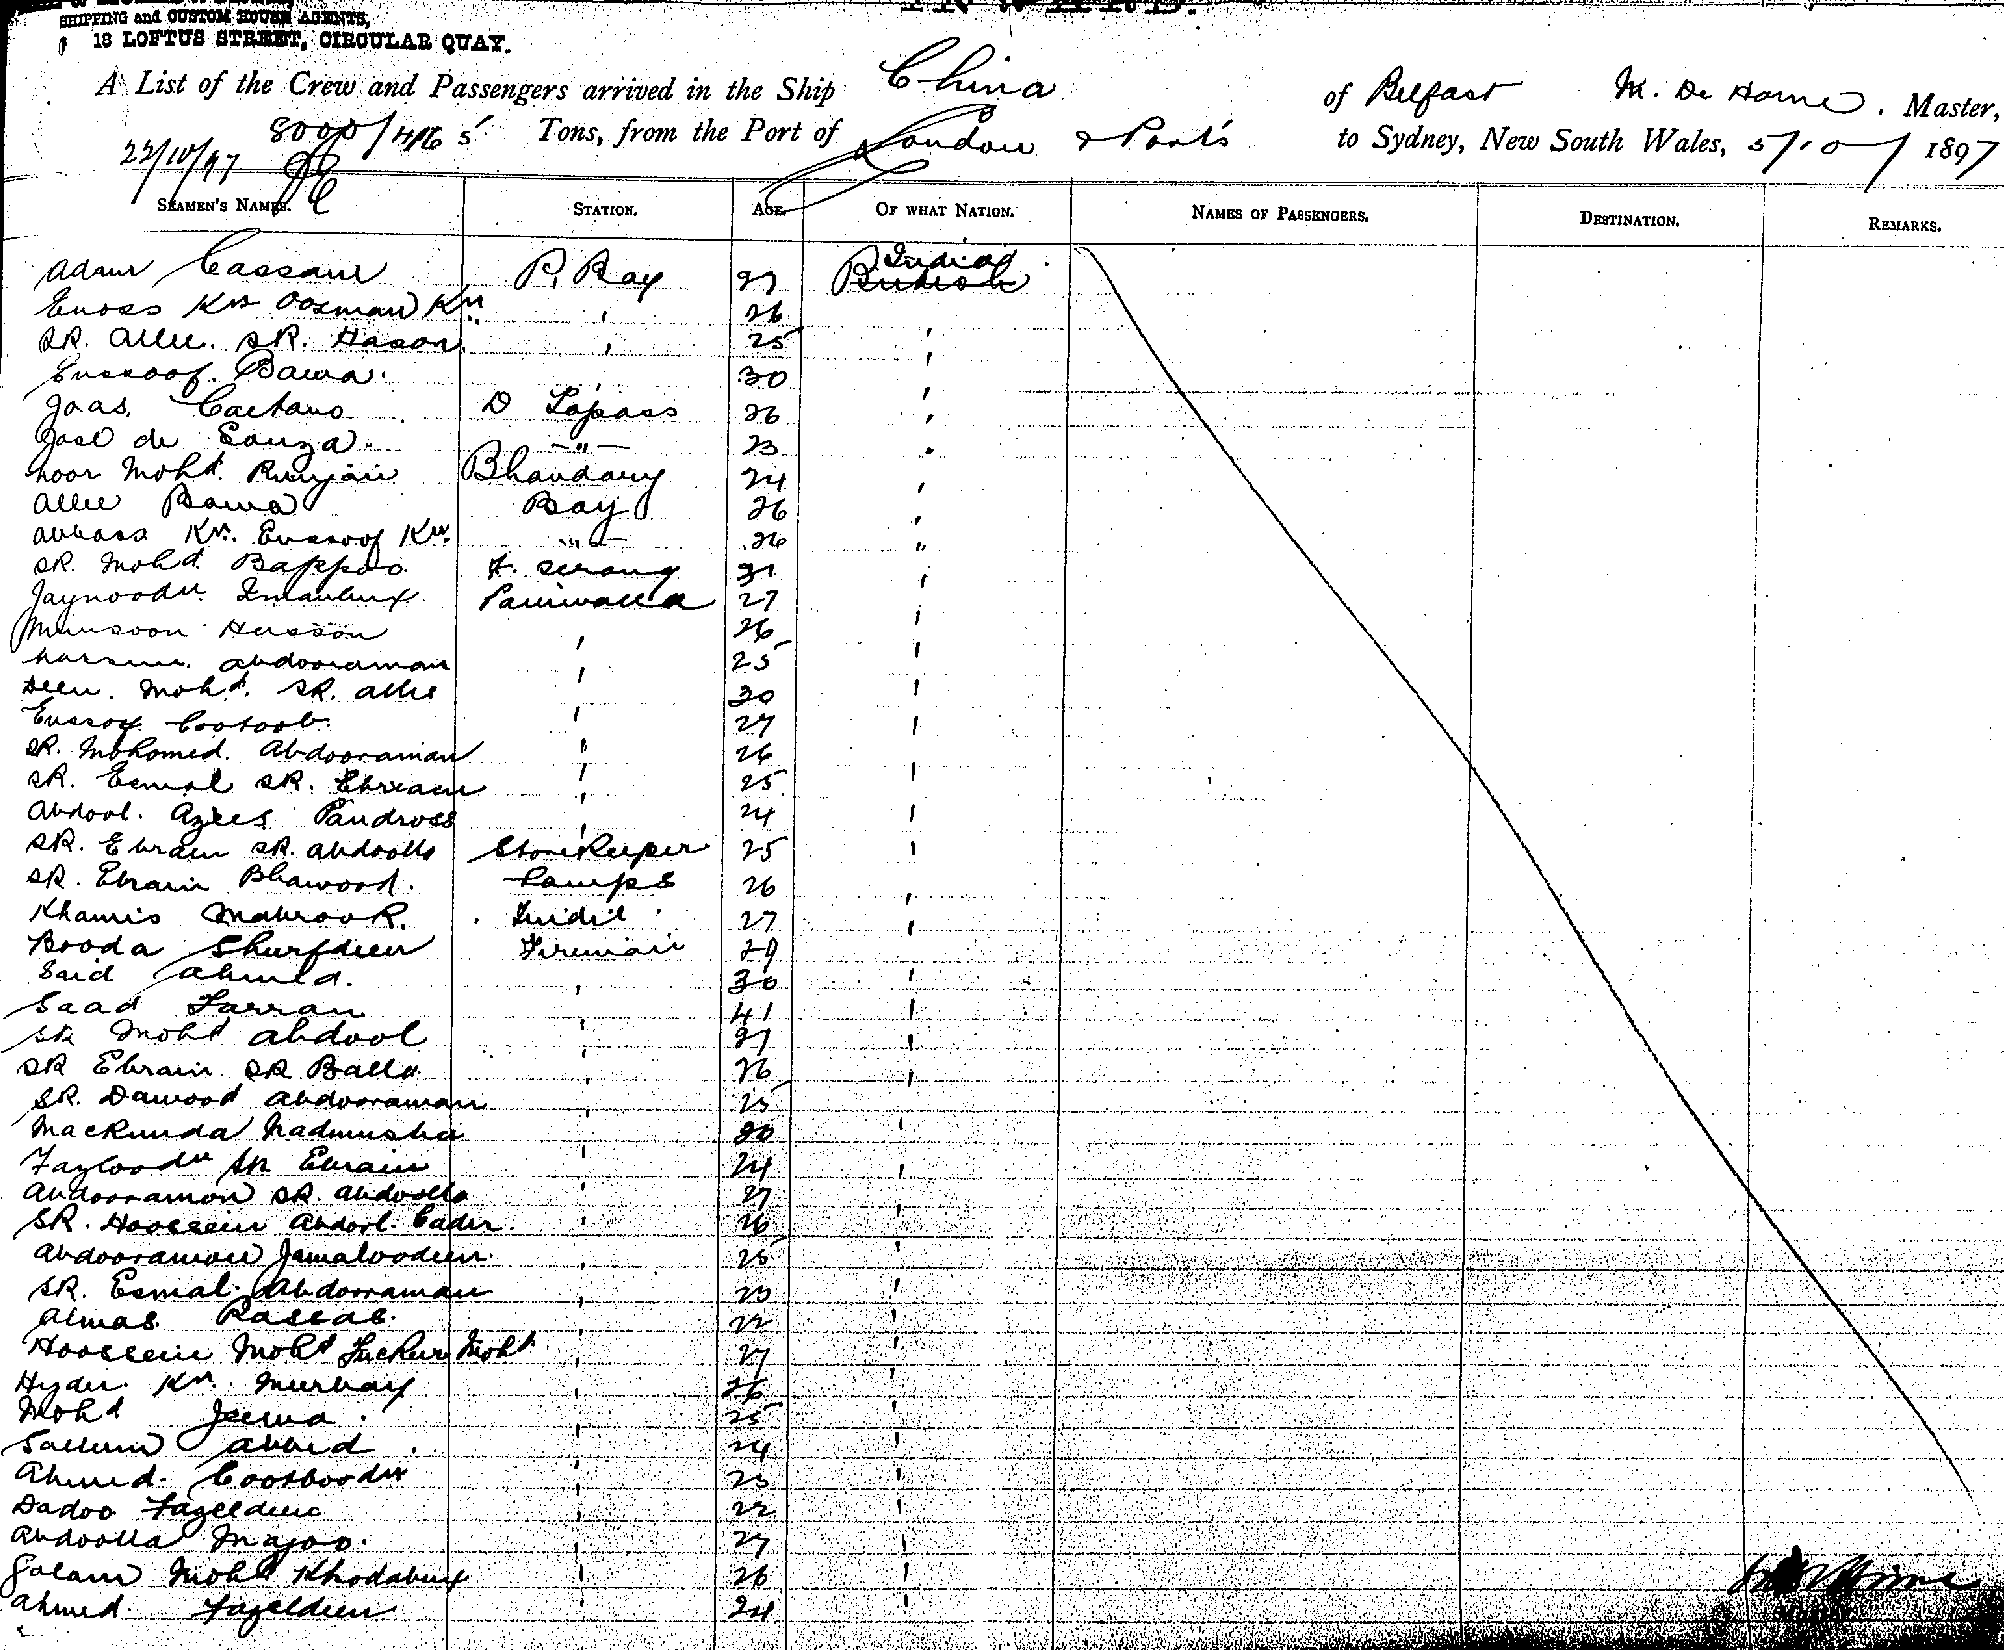 SHIPPING and CUSTOM HOUSE AGENTS,
18 LOFTUS STREET, CIRCULAR QUAY.
A List of the Crew and Passengers arrived in the Ship China of Belfast M. De Horne. Master,
8000/4165 Tons, from the Port of London & Ports to Sydney, New South Wales, 5/10/1897
22/10/97
SEAMEN'S NAMES. STATION. AGE. OF WHAT NATION. NAMES OF PASSENGERS. DESTINATION. REMARKS.
Adam Cassam P. Boy 27 British India
Enoss Kn Oosman Kn " 26 "
SR. Allee. SR. Hason " 25 "
Eussoof. Bawa. " 30 "
Joas. Caetano D Topass 26 "
Jose de Souza. — " — 23 "
Noor Mohd. Runjan Bhandary 24 "
Allee Bawa Boy 26 "
Abbass Kn. Eussoof Kn. — " — 26 "
SR. Mohd. Bappoo F. Serang 31 "
Jaynoodn. Imambux Paniwalla 27 "
Munsoor Hasson " 26 "
Abdooraman " 25 "
Deen. Mohd. SR. Allie " 30 "
Eussoof Cootoob. " 27 "
SR. Mohomed. Abdooraman " 26 "
SR. Esmal SR. Ebraim " 25 "
Abdool. Azees Pandross " 24 "
SR. Ebraim SR. Abdoolla Storekeeper 25 "
SR. Ebraim Dhawood. Lamps 26 "
Khamis Mabrook. Tindil 27 "
Booda Shurfdeen Fireman 29 "
Said Ahmed. " 30 "
Saad Farran " 41 "
SR Mohd Abdool " 27 "
SR Ebraim SR Balla " 26 "
SR. Dawood Abdooraman " 25 "
Mackunda Nadmusha " 30 "
Fazloodn SR Ebraim " 24 "
Abdooramon SR. Abdoolla " 27 "
SR. Hoossein Abdool. Cader. " 26 "
Abdooramon Jamaloodeen. " 25 "
SR. Esmal. Abdooraman " 23 "
Almas. Rascal. " 22 "
Hoossein Mohd Fuckur Mohd " 27 "
Hyder. Kn. Meerbay " 26 "
Mohd Jeewa. " 25 "
Sallum Abbed. " 24 "
Ahmed. Cootboodn " 23 "
Dadoo Fazeldeen " 22 "
Abdoolla Majoo. " 27 "
Golam Mohd Khodabux " 26 "
Ahmed. Fazeldeen " 24 "